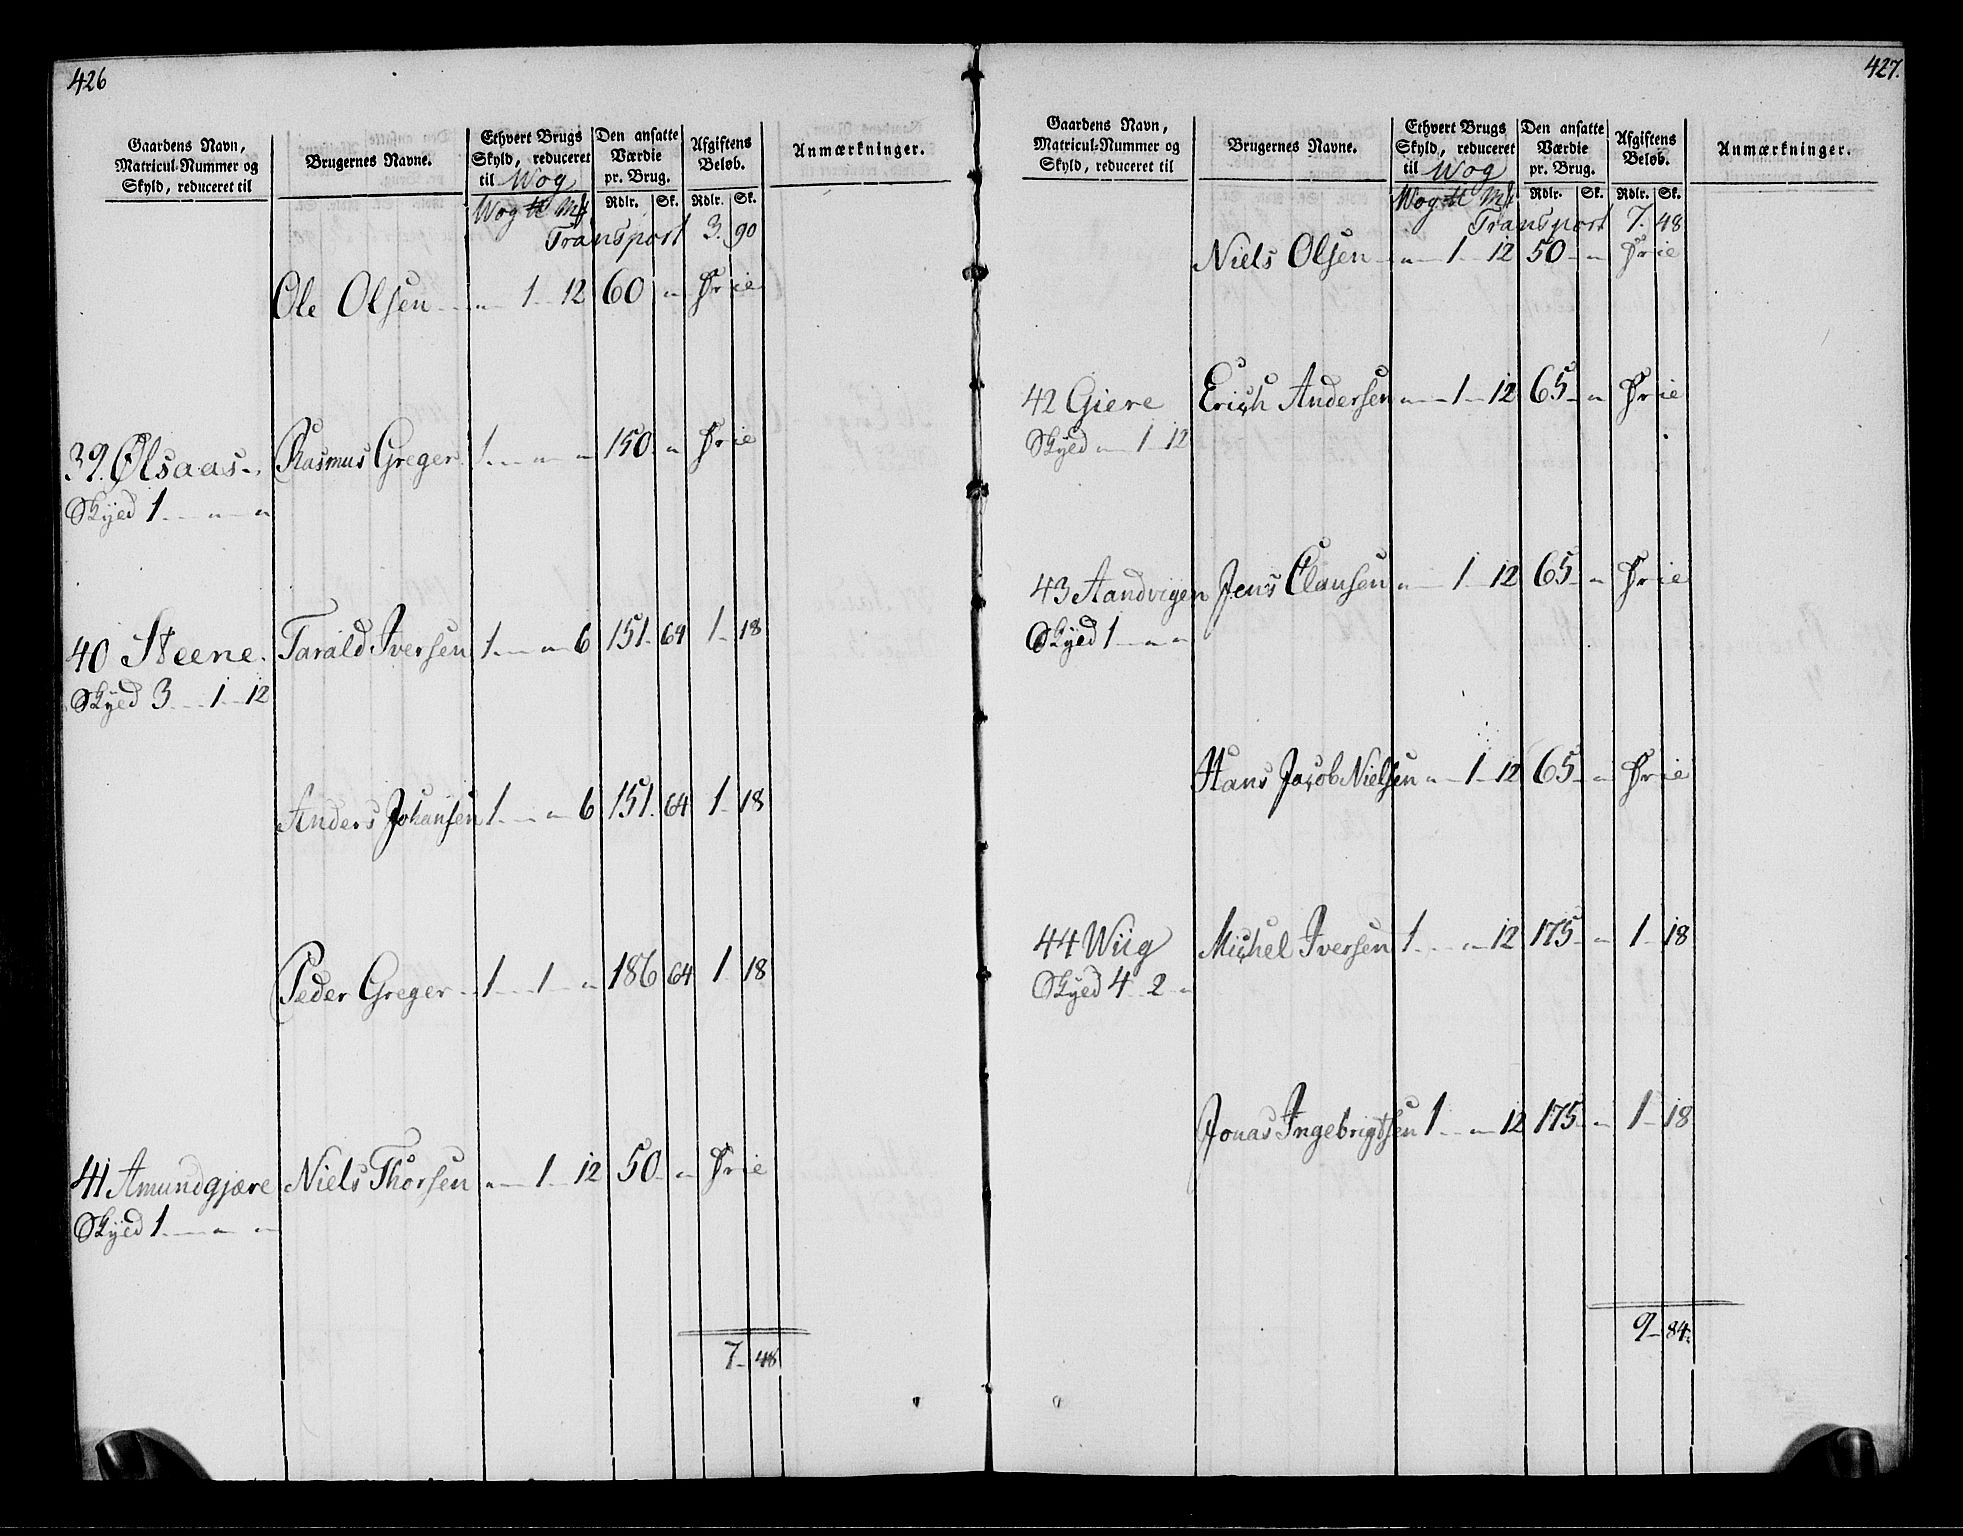 426
Gaardens Navn, Matricul-Nummer og Skyld, reduceret til | Brugernes Navne. | Ethvert Brugs Skyld, reduceret til Wog | Den ansatte Værdie pr. Brug. | Afgiftens Beløb. | Anmærkninger.
Wog ℔ Mk | Rdlr. | Sk. | Rdlr. | Sk.
Transport 3. 90
Ole Olsen " 1 12 60 " Frie
39. Ølsaas Rasmus Greger 1 " " 150 " Frie
Skyed 1 " "
40 Steene. Tarald Iversen 1 " 6 151. 64 1 18
Skyed 3 1 12
Anders Johansen 1 " 6 151. 64 1 18
Peder Greger 1 1 " 186 64 1 18
41 Amundgjære Niels Thorsen " 1 12 50 " Frie
Skyed 1 " "
7 48
427.
Gaardens Navn, Matricul-Nummer og Skyld, reduceret til | Brugernes Navne. | Ethvert Brugs Skyld, reduceret til Wog | Den ansatte Værdie pr. Brug. | Afgiftens Beløb. | Anmærkninger.
Wog ℔ Mk | Rdlr. | Sk. | Rdlr. | Sk.
Transport 7. 48
Niels Olsen " 1 12 50 " Frie
42 Giere Erich Andersen " 1 12 65 " Frie
Skyed " 1 12
43 Aandvigen Jens Clausen " 1 12 65 " Frie
Skyed 1 " "
Hans Jacob Nielsen " 1 12 65 " Frie
44 Wiig Michel Iversen 1 " 12 175 " 1 18
Skyed 4 2 "
Jonas Ingebrigtsen 1 " 12 175 " 1 18
9 84.